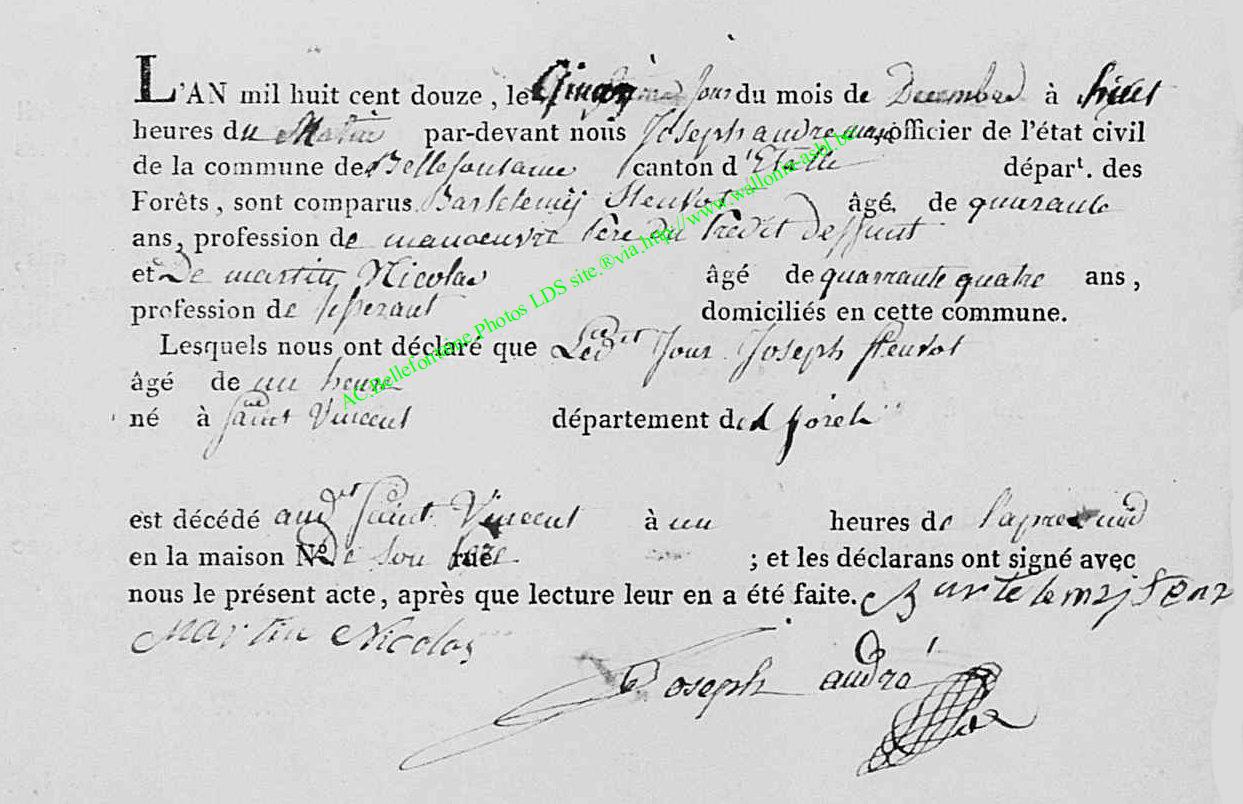 L'AN mil huit cent douze, le Cinq jour du mois de Decembre à huit
heures du Matin par-devant nous Joseph andre officier de l'état civil
de la commune de Bellefontaine canton d'Etalle départ. des
Forêts, sont comparus Bartelemij âgé de quarante
ans, profession de manoeuvre Père du deffunt
et De martin Nicolas âgé de quarante quatre ans,
profession de domiciliés en cette commune.
Lesquels nous ont déclaré que Led.et Jour Joseph
âgé de un heure
né à Saint Vincent département des forêts
est décédé aud.et Saint Vincent à un heures de l'apres midi
en la maison N.o De Son Père rue ; et les déclarans ont signé avec
nous le présent acte, après que lecture leur en a été faite. Bartelemij
Martin Nicolas
Joseph andré
AC.Bellefontaine Photos LDS site.®via.http://www.wallonia-asbl.be